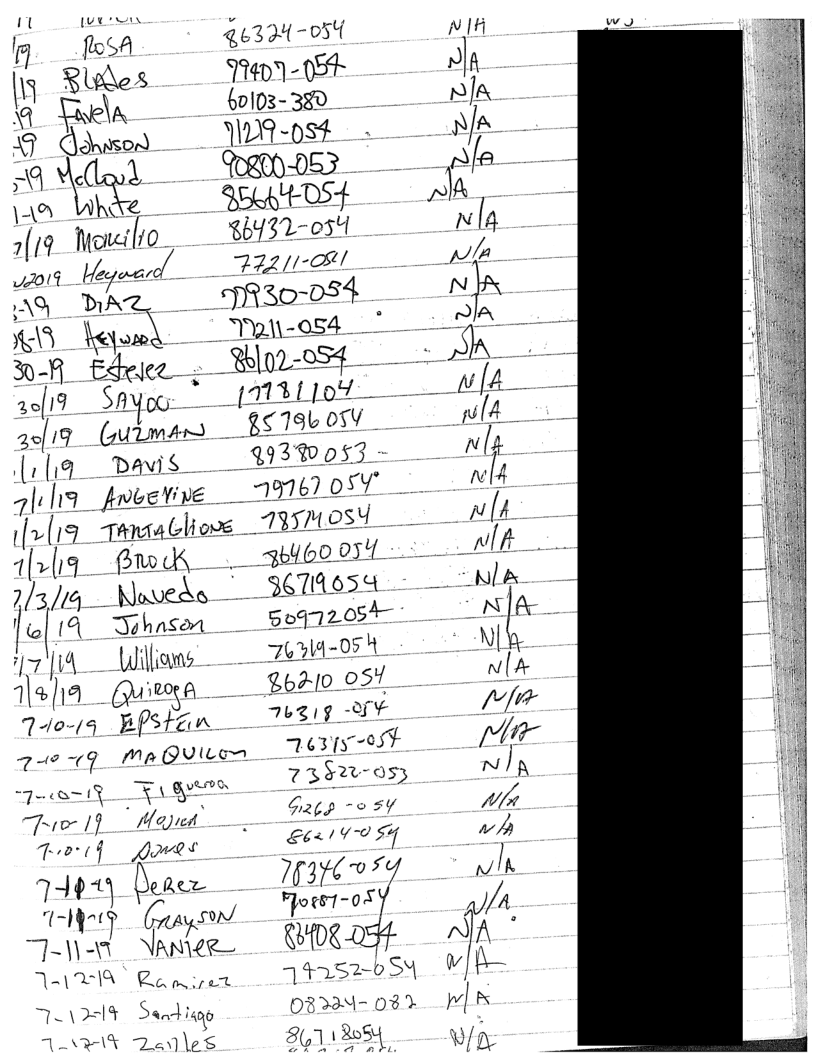 /19 ROSA 86324-054 N/A
/19 BLAdes 79407-054 N/A
-19 FAvelA 60103-380 N/A
-19 JohNSON 71219-054 N/A
-19 McCloud 90800-053 N/A
1-19 White 85664-054 N/A
7/19 Moncilio 86432-054 N/A
2019 Heyward 77211-051 N/A
-19 DiAZ 77930-054 N/A
8-19 HEYWARD 77211-054 N/A
30-19 Estevez 86102-054 N/A
30/19 SAYOC 17781104 N/A
30/19 GUZMAN 85796054 N/A
/1/19 DAVIS 89380053 - N/A
7/1/19 ANGEVINE 79767 054 N/A
1/2/19 TARTAGLIONE 78514054 N/A
7/2/19 BROCK 86460 054 N/A
7/3/19 Navedo 86719054 N/A
/6/19 Johnson 50972054 N/A
/7/19 Williams 76319-054 N/A
7/8/19 QuirogA 86210 054 N/A
7-10-19 EPStEin 76318-054 N/A
7-10-19 MAQUILON 76315-054 N/A
7-10-19 Figueroa 73822-053 N/A
7-10-19 91268-054 N/A
7-10-19 86214-054 N/A
7-10-19 PeRez 78346-054 N/A
7-11-19 GRAYSON 70887-054 N/A
7-11-19 VANIER 86408-054 N/A
7-12-19 Ramirez 79252-054 N/A
7-12-19 Santiago 08224-082 N/A
7-12-19 86718054 N/A